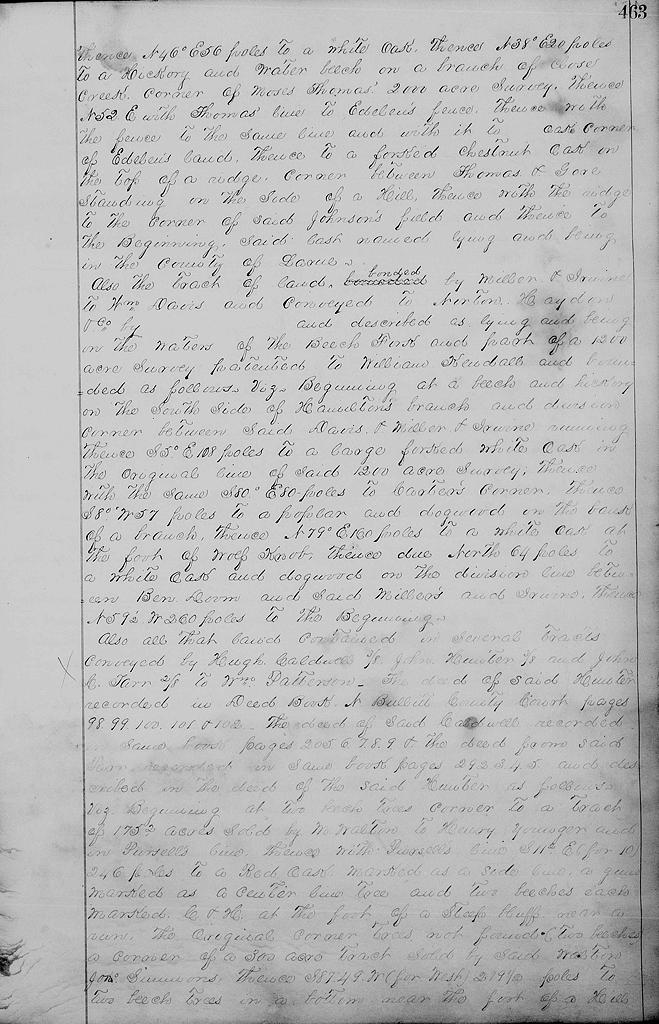 463
thence N46° E56 poles to a white Oak. thence N38° E20 poles
to a Hickory and Water beech on a branch of Close
Creek. Corner of Moses Thomas' 2000 acre Survey. thence
N52 E with Thomas' line to Edelen's fence. thence with
the fence to the same line and with it to oak corner
of Edelen's land. thence to a forked Chestnut Oak in
the top of a ridge. corner between Thomas & Gore
standing on the side of a Hill, thence with the ridge
to the corner of said Johnson's field and thence to
the Beginning. Said last named lying and being
in the County of Larue.
Also the tract of land, bonded by Wilber & Irwine
to Wm Davis and conveyed to Norton. Haydon
& Co by and described as lying and being
on the waters of the Beech Fork and part of a 1200
acre survey patented to William Kendall and boun-
=ded as follows Viz. Beginning at a beech and hickory
on the South side of Hamilton's branch and division
corner between said Davis & Wilber & Irwine running
thence S5° E 108 poles to a large forked white Oak in
the original line of said 1200 acre Survey. thence
with the same S80° E80 poles to Carter's corner. thence
S8° W57 poles to a poplar and dogwood on the bank
of a branch. thence N79° E160 poles to a white oak at
the foot of Wolf Knob. thence due North 64 poles to
a white Oak and dogwood on the division line betw-
een Ben. Doom and said Millers and Irwine. thence
N59½ W260 poles to the Beginning
Also all that land contained in several tracts
X conveyed by Hugh Caldwell ⅜. John Hunter ⅜ and John
C. Tarr ²⁄₈ to Wm Patterson. The deed of said Hunter
recorded in Deed Book N Bullitt County Court pages
98.99.100.101 & 102. The deed of said Caldwell recorded
in same book pages 205.6.7.8.9 & the deed from said
Tarr recorded in same book pages 292.3.4.5. and des
cribed in the deed of the said Hunter as follows
Viz. Beginning at two beech trees corner to a tract
of 175½ acres sold by W. Walton to Henry Younger and
in Pursell's line. thence with Pursell's line S11° E (for 10)
246 poles to a Red Oak marked as a side line. a gum
marked as a center line tree and two beeches each
marked. C & H. at the foot of a steep bluff near a
run. the original corner trees not found (two beeches
a corner of a 500 acre tract sold by said Walton
Jono Simmons. thence S87.49. W (for West) 289½ poles to
two beech trees in a bottom near the foot of a Hill